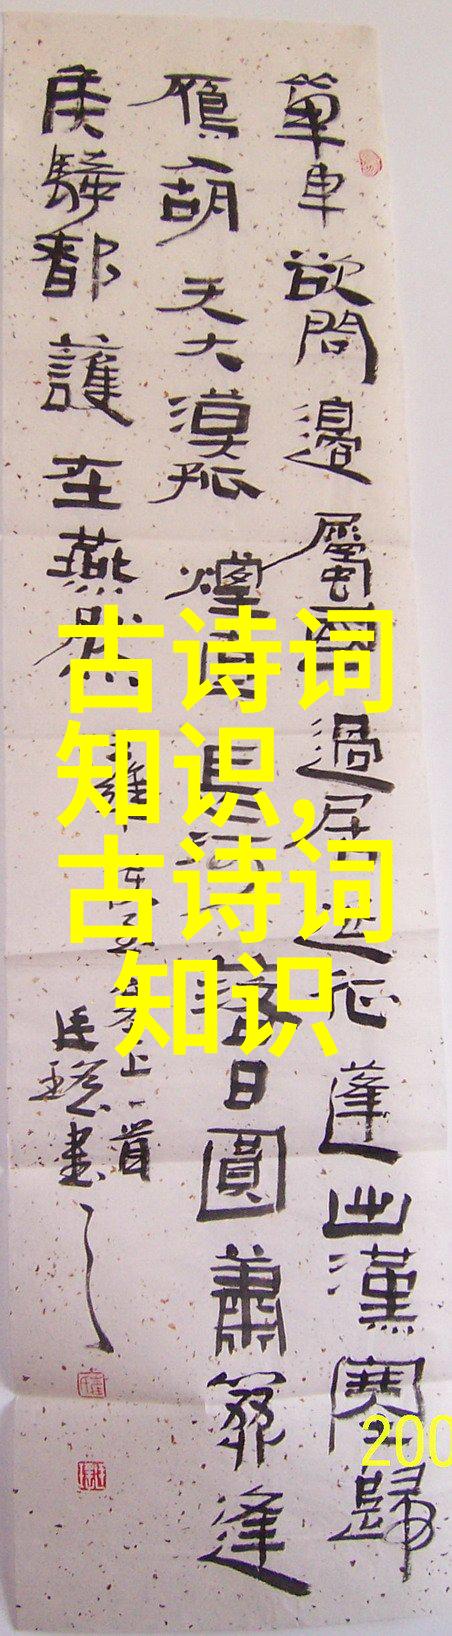 單車欲問邊屬國過居延征蓬出漢塞歸
鴈入胡天大漠孤煙直長河落日圓蕭關逢
候騎都護在燕然
王維使至塞上一首
書
古诗词
知识,
古诗词
知识
200